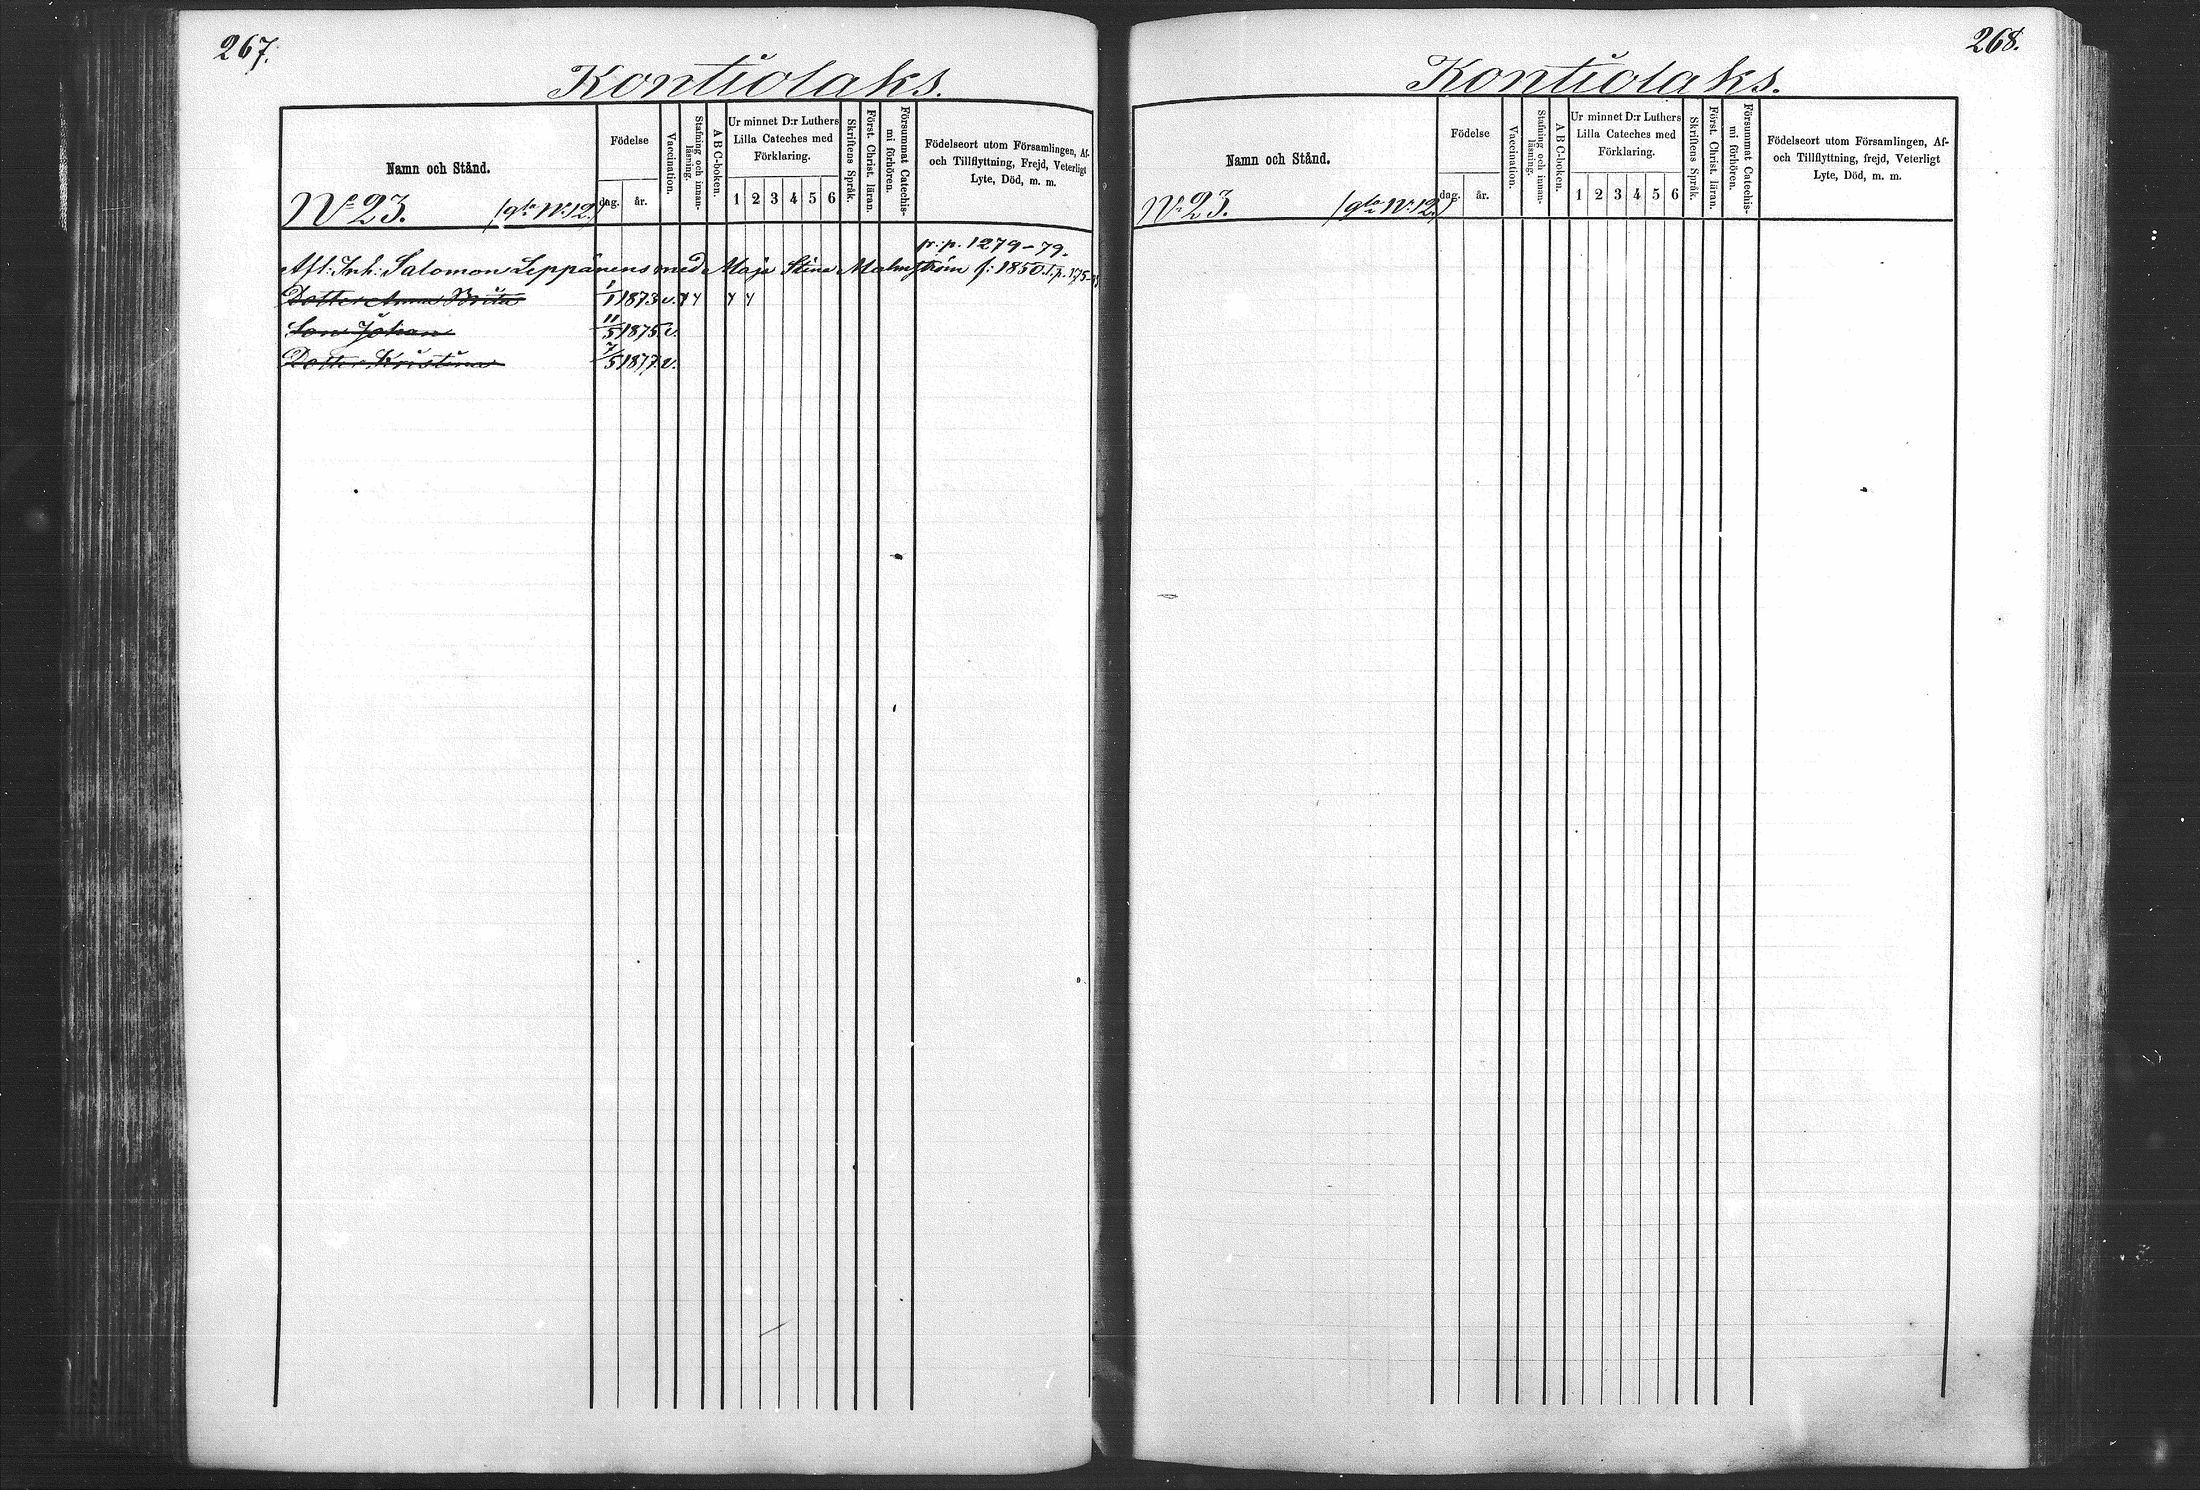 267.
Kontiolaks.
Namn och Stånd.
Födelse
dag.
år.
Vaccination.
Stafning och innanläsning.
A B C-boken.
Ur minnet D:r Luthers
Lilla Cateches med
Förklaring.
1 2 3 4 5 6
Skriftens Språk.
Först. Christ. läran.
Försummat Catechismi förhören.
Födelseort utom Församlingen, Af-
och Tillflyttning, Frejd, Veterligt
Lyte, Död, m. m.
No 23. (gla No 12.)
p. p. 1279-79.
Afl: Inh: Salomon Leppänens med Maja Stina Malmström f: 1850. p. 175-
Dotter Anna Brita 1/1 1873 v. y y y y
Son Johan 11/5 1875 v.
Dotter Kristina 7/5 1877 v.
268.
Kontiolaks.
Namn och Stånd.
Födelse
dag.
år.
Vaccination.
Stafning och innanläsning.
A B C-boken.
Ur minnet D:r Luthers
Lilla Cateches med
Förklaring.
1 2 3 4 5 6
Skriftens Språk.
Först. Christ. läran.
Försummat Catechismi förhören.
Födelseort utom Församlingen, Af-
och Tillflyttning, frejd, Veterligt
Lyte, Död, m. m.
No 23. (gla No 12.)